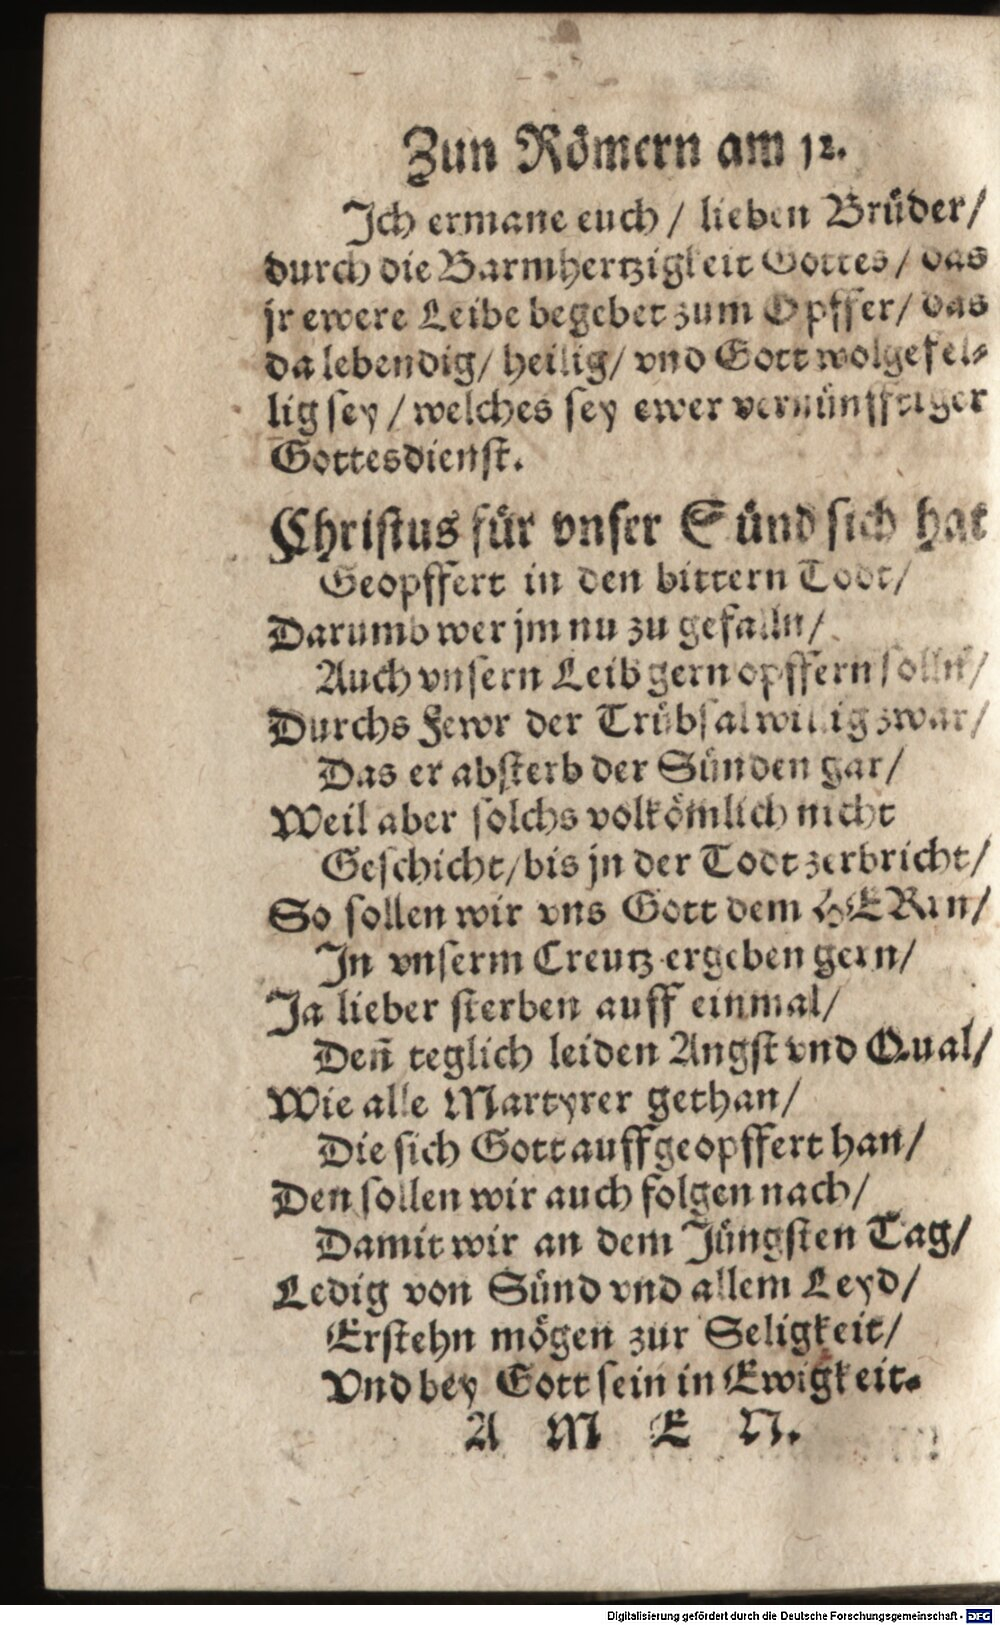 Zun Römern am 12.
Ich ermane euch / lieben Brüder/
durch die Barmhertzigkeit Gottes / das
jr ewere Leibe begebet zum Opffer/ das
da lebendig/ heilig/ vnd Gott wolgefel-
lig sey / welches sey ewer vernünfftiger
Gottesdienst.
Christus für vnser Sünd sich hat
Geopffert in den bittern Todt/
Darumb wer jm nu zu gefalln/
Auch vnsern Leib gern opffern solln/
Durchs Fewr der Trübsal willig zwar/
Das er absterb der Sünden gar/
Weil aber solchs volkömlich nicht
Geschicht/ bis jn der Todt zerbricht/
So sollen wir vns Gott dem HERrn/
In vnserm Creutz ergeben gern/
Ja lieber sterben auff einmal/
Deñ teglich leiden Angst vnd Qual/
Wie alle Martyrer gethan/
Die sich Gott auffgeopffert han/
Den sollen wir auch folgen nach/
Damit wir an dem Jüngsten Tag/
Ledig von Sünd vnd allem Leyd/
Erstehn mögen zur Seligkeit/
Vnd bey Gott sein in Ewigkeit.
A M E N.
Digitalisierung gefördert durch die Deutsche Forschungsgemeinschaft - DFG